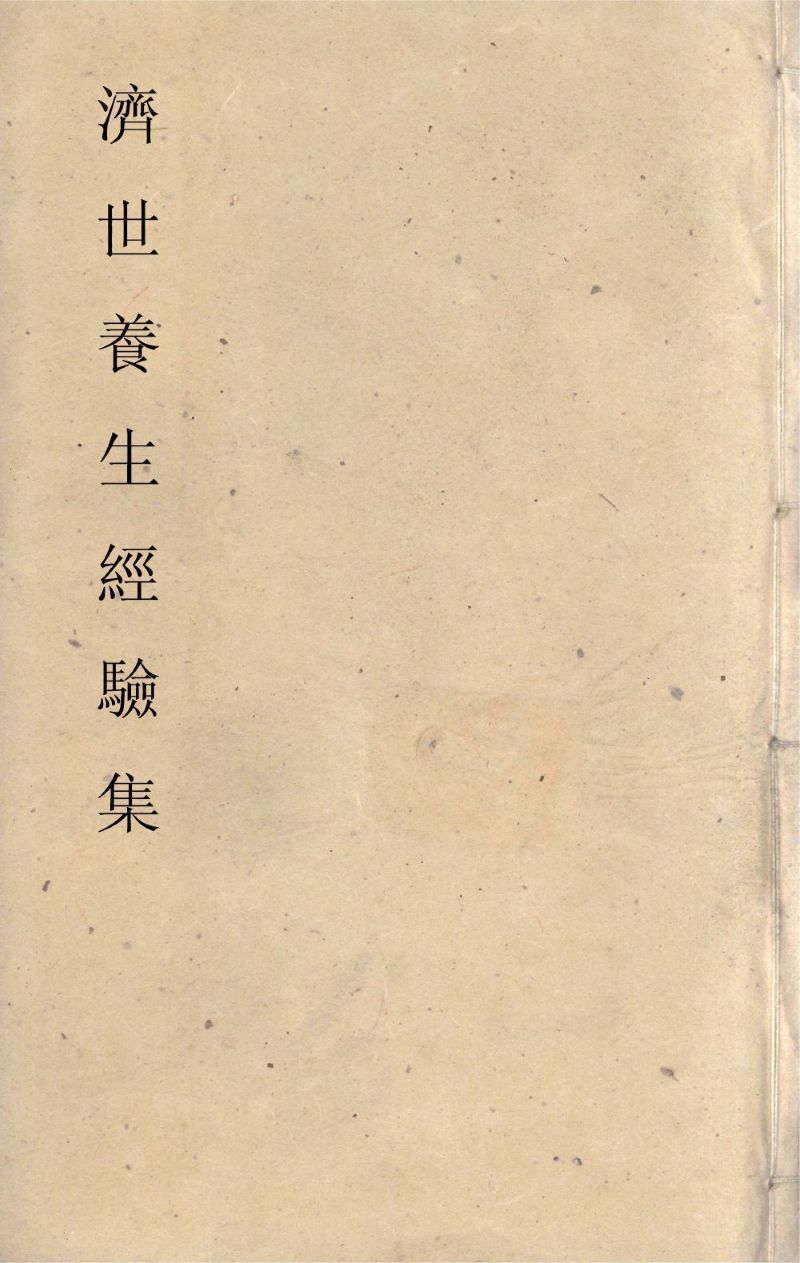 濟世養生經驗集